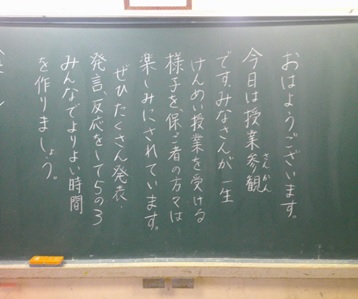 おはようございます。
今日は授業参観
さんかん
です。みなさんが一生
けんめい授業を受ける
様子を、保ご者の方々は
楽しみにされています。
ぜひたくさん発表・
発言、反応をして5の3
みんなでよりよい時間
を作りましょう。